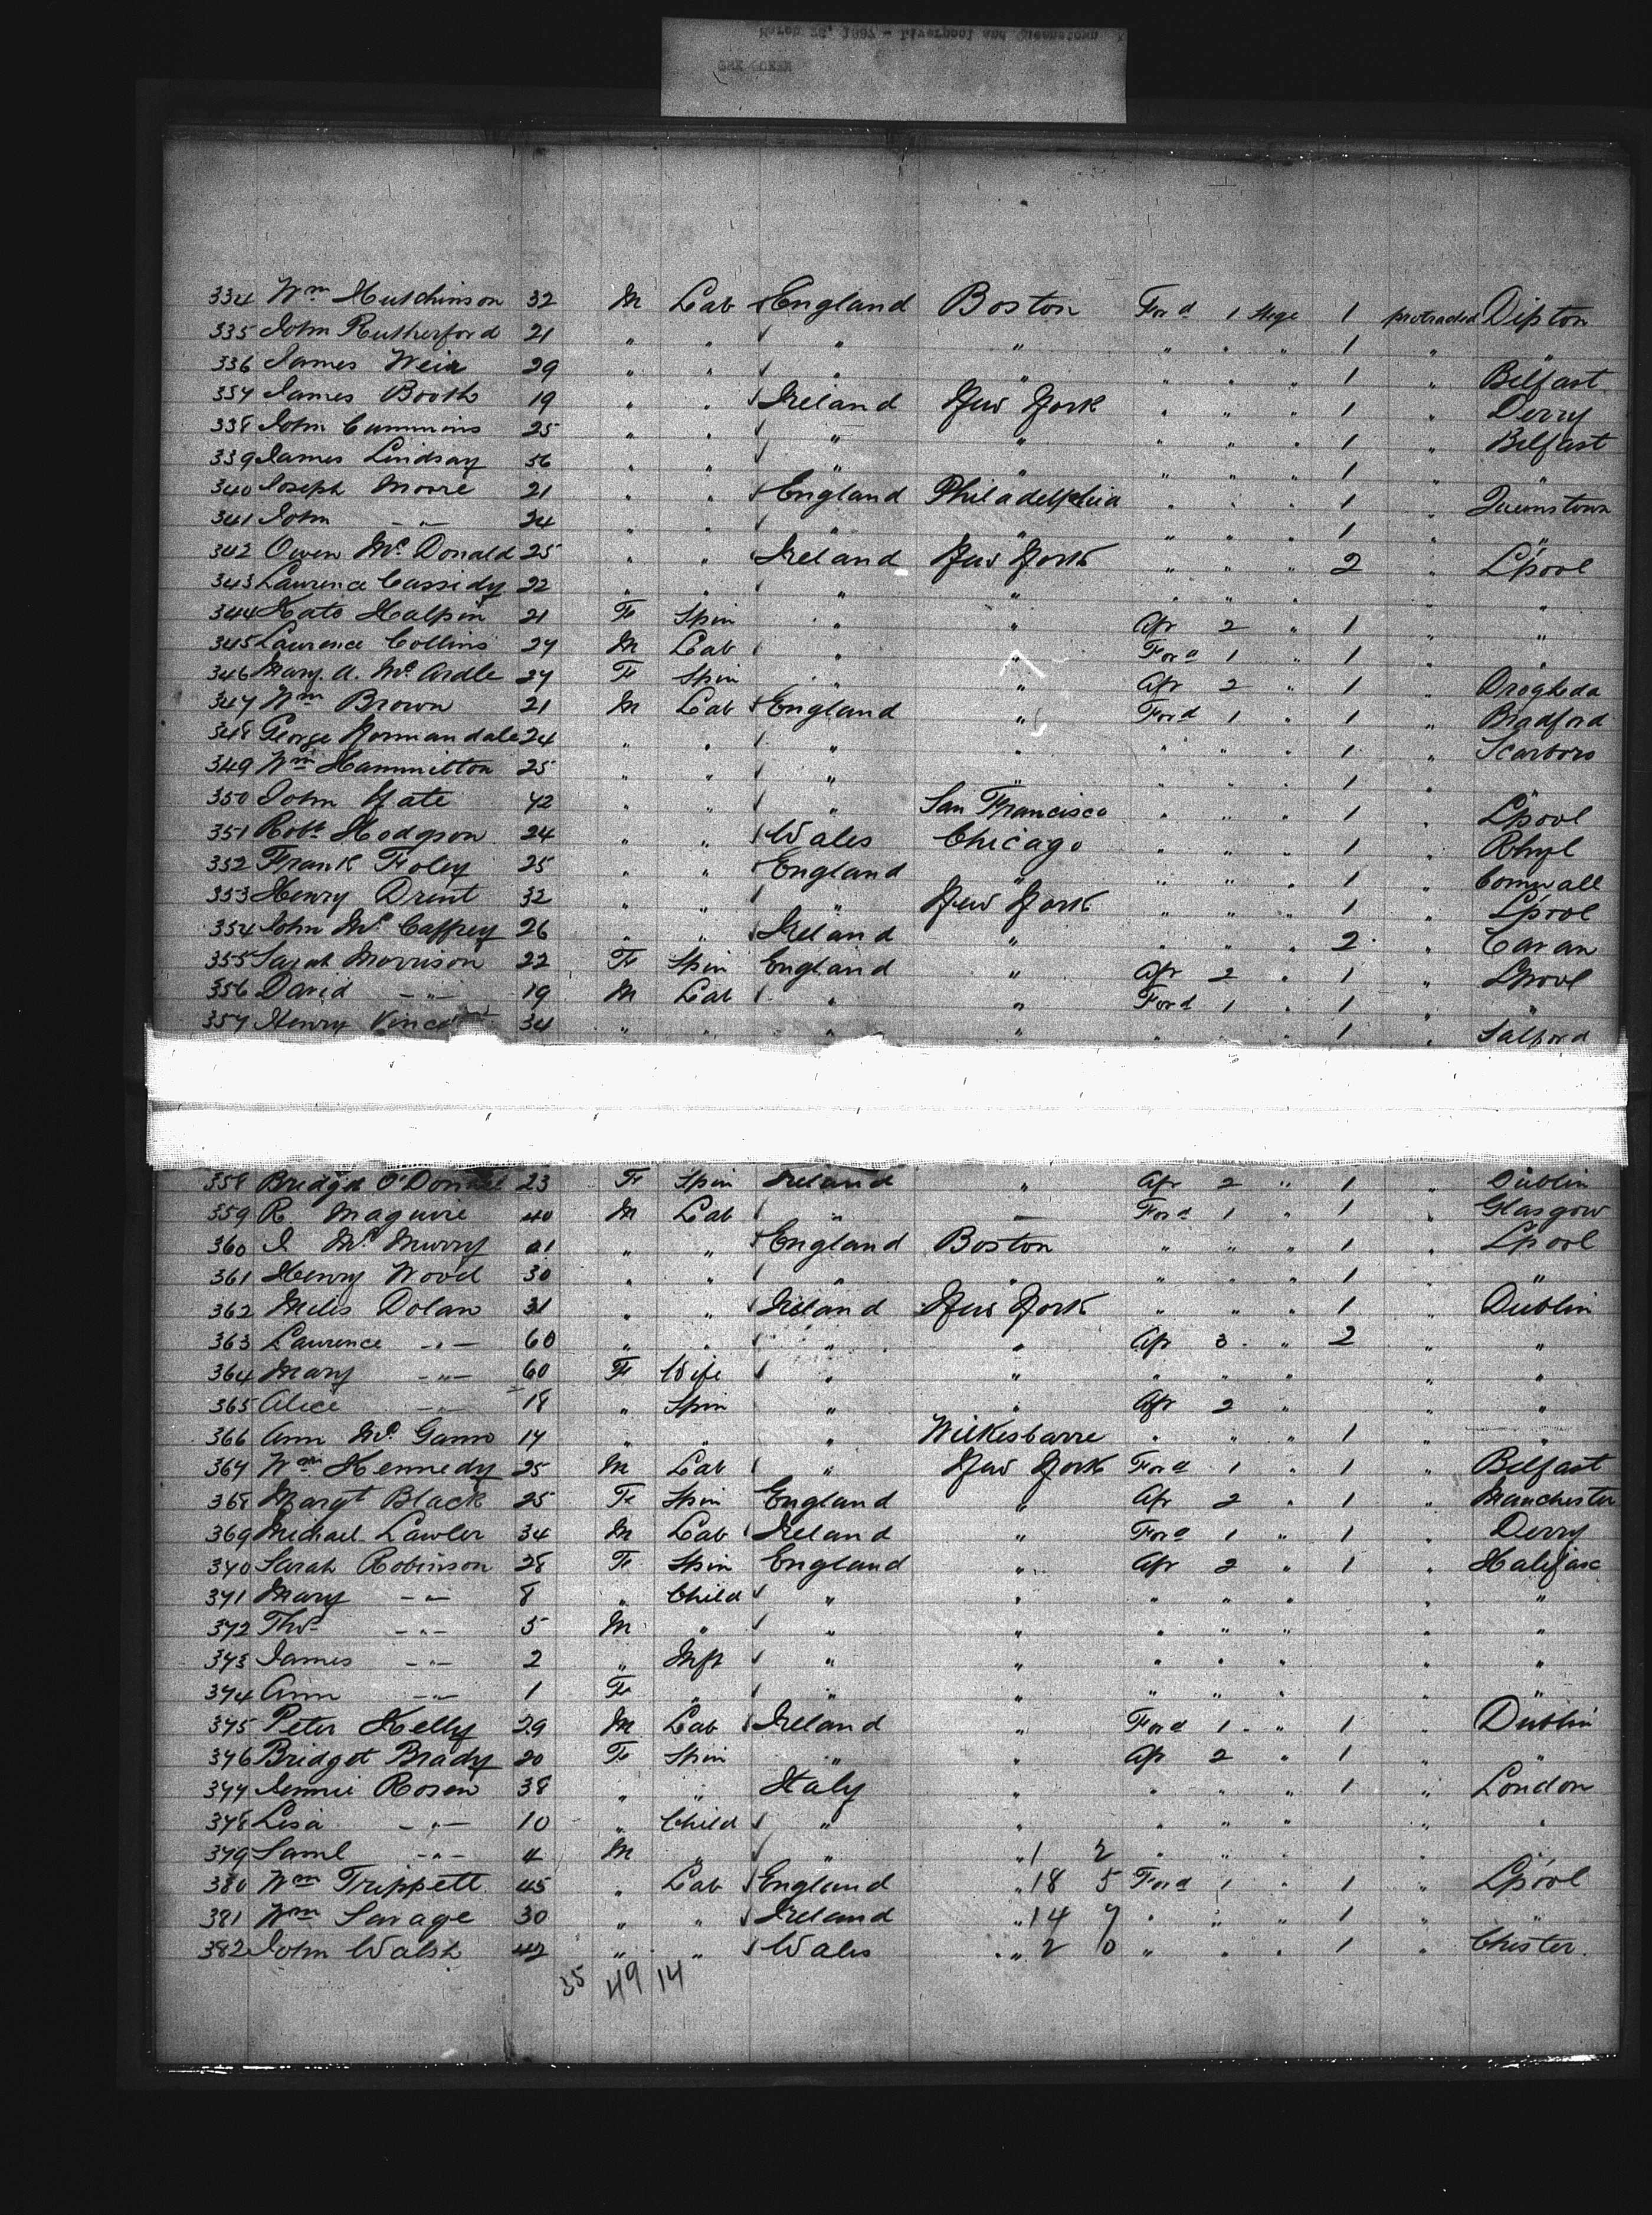 March 26, 1897 - Liverpool and Queenstown
334 Wm Hutchinson 32 M Lab England Boston Ford 1 Stge 1 protracted Dipton
335 John Rutherford 21 " " " " " " " 1 " "
336 James Weir 29 " " " " " " " 1 " Belfast
337 James Booth 19 " " Ireland New York " " " 1 " Derry
338 John Cummins 25 " " " " " " " 1 " Belfast
339 James Lindsay 56 " " " " " " " 1 " "
340 Joseph Moore 21 " " England Philadelphia " " " 1 " Queenstown
341 John -"- 24 " " " " " " " 1 " "
342 Owen McDonald 25 " " Ireland New York " " " 2 " L'pool
343 Laurence Cassidy 22 " " " " " " " " "
344 Kate Halpin 21 Fe Spin " " Aft 2 " 1 " "
345 Laurence Collins 27 M Lab " " Ford 1 " 1 " "
346 Mary A. McArdle 27 Fe Spin " " Aft 2 " 1 " Drogheda
347 Wm Brown 21 M Lab England " Ford 1 " 1 " Bradford
348 George Normandale 24 " " " " " " " 1 " Scarboro
349 Wm Hammilton 25 " " " " " " " 1 " "
350 John Yate 42 " " " San Francisco " " " 1 " L'pool
351 Robt Hodgson 24 " " Wales Chicago " " " 1 " Rhyl
352 Frank Foley 25 " " England " " " " 1 " Cornwall
353 Henry Drent 32 " " " New York " " " 1 " L'pool
354 John McCaffrey 26 " " Ireland " " " " 2 " Cavan
355 Sarah Morrison 22 Fe Spin England " Aft 2 " 1 " L'pool
356 David -"- 19 M Lab " " Ford 1 " 1 " "
357 Henry 34 " " " " " " " 1 " Salford
358 Bridget O'Donnell 23 Fe Spin Ireland " Aft 2 " 1 " Dublin
359 R. Maguire 40 M Lab " " Ford 1 " 1 " Glasgow
360 J McMurry 21 " " England Boston " " " 1 " L'pool
361 Henry Wood 30 " " " " " " " 1 " "
362 Miles Dolan 31 " " Ireland New York " " " 1 " Dublin
363 Laurence -"- 60 " " " " Aft 3 " 2 " "
364 Mary -"- 60 Fe Wife " " " " " " "
365 Alice -"- 18 " Spin " " Aft 2 " " "
366 Ann 17 " " " Wilkesbarre " " " 1 " "
367 Wm Kennedy 25 M Lab " New York Ford 1 " 1 " Belfast
368 Margt Black 25 Fe Spin England " Aft 2 " 1 " Manchester
369 Michael Lawler 34 M Lab Ireland " Ford 1 " 1 " Derry
370 Sarah Robinson 28 Fe Spin England " Aft 2 " 1 " Halifax
371 Mary -"- 8 " Child " " " " " " "
372 Thos -"- 5 M " " " " " " " "
373 James -"- 2 " Inft " " " " " " "
374 Ann -"- 1 Fe " " " " " " " "
375 Peter Kelly 29 M Lab Ireland " Ford 1 " 1 " Dublin
376 Bridget Brady 20 Fe Spin " " Aft 2 " 1 " "
377 Jennie Rosen 38 " " Italy " " " " 1 " London
378 Lisa -"- 10 " Child " " " " " " "
379 Saml -"- 4 M " " " 1 2 " " " " "
380 Wm Trippett 45 " Lab England " 18 5 Ford 1 " 1 " L'pool
381 Wm Savage 30 " " Ireland " 14 7 " " " 1 " "
382 John Walsh 42 " " Wales " 2 0 " " " 1 " Chester
35 49 14